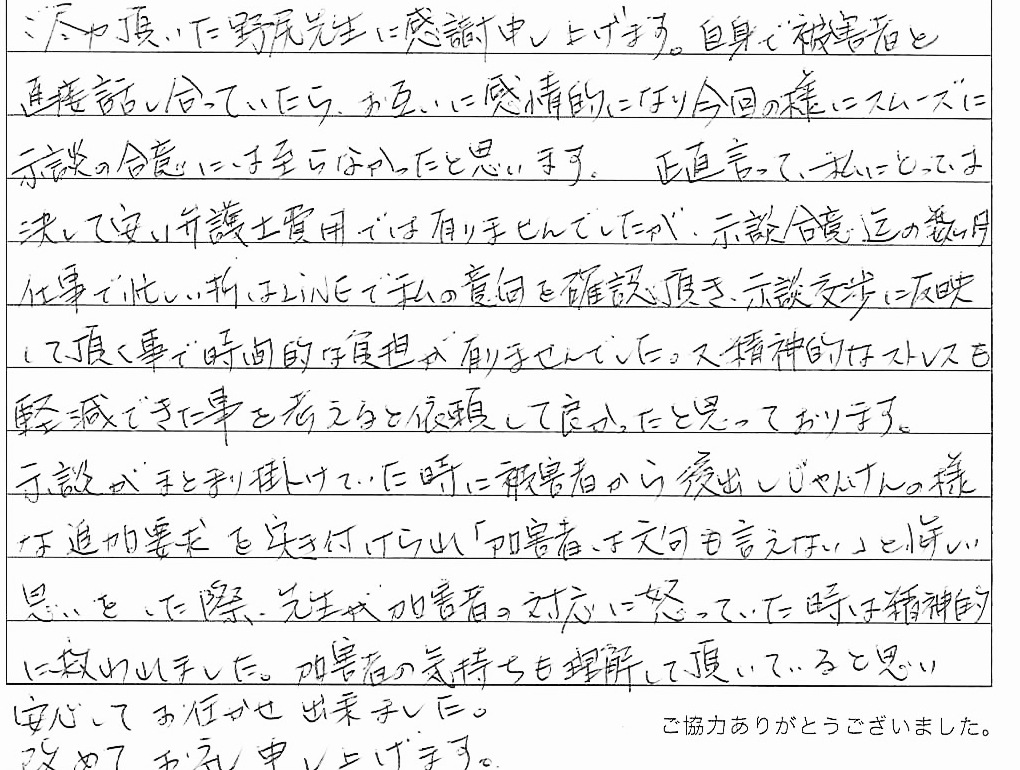 ご尽力頂いた野尻先生に感謝申し上げます。自身で被害者と
直接話し合っていたら、お互いに感情的になり今回の様にスムーズに
示談の合意には至らなかったと思います。 正直言って、私にとっては
決して安い弁護士費用では有りませんでしたが、示談合意迄の数ヶ月
仕事で忙しい折はLiNEで私の意向を確認頂き、示談交渉に反映
して頂く事で時間的な負担が有りませんでした。又、精神的なストレスも
軽減できた事を考えると依頼して良かったと思っております。
示談がまとまり掛けていた時に被害者から後出しじゃんけんの様
な追加要求を突き付けられ「加害者は文句も言えない」と悔しい
思いをした際、先生が加害者の対応に怒っていた時は精神的
に救われました。加害者の気持ちも理解して頂いていると思い
安心してお任かせ出来ました。
改めてお礼申し上げます。
ご協力ありがとうございました。